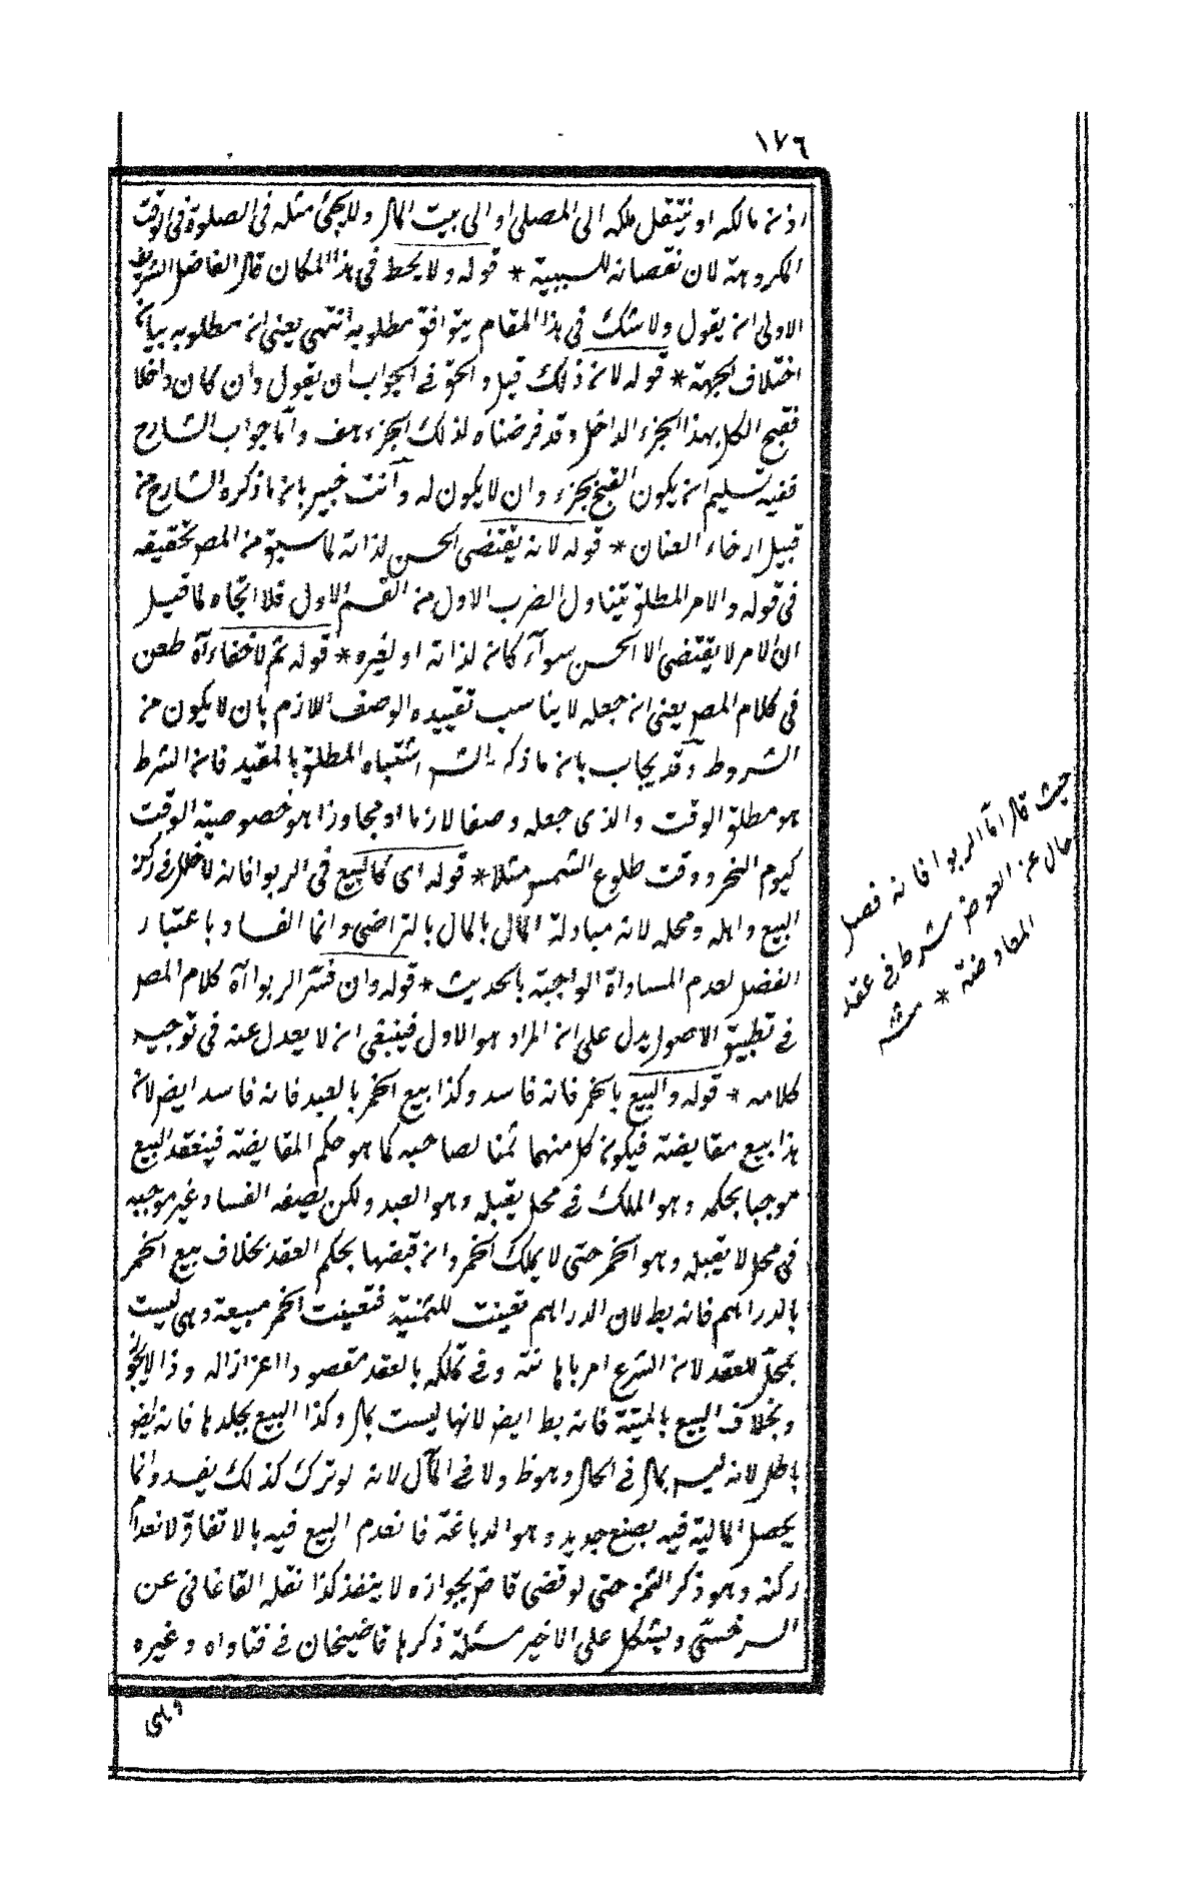 ١٧٦
اذن مالكه او ننتقل ملكه الى المصلى او الى بيت المال ولا يجئ مثله فى الصلوة فى الوقت
المكروهة لان نقصانه للسببية * قوله ولا يحط فى هذا المكان قال الفاضل الشريف
الاولى ان يقول ولا شك فى هذا المقام يتوافق مطلوبه انتهى يعنى ان مطلوبه بيان
اختلاف الجهة * قوله لان ذلك قيل والحق فى الجواب ان يقول وان كان داخلا
فقبح الكل بهذا الجزء الداخل وقد فرضناه لذلك الجزء هف وأما جواب الشارح
ففيه تسليم ان يكون القبح بجزء وان لا يكون له وأنت خبير بان ما ذكره الشارح من
قبيل ارخاء العنان * قوله لانه يقتضى الحسن لذاته لما سبق من المصر تحقيقه
فى قوله والامر المطلق يتناول الضرب الاول من القسم الاول فلا اتجاه لما قيل
ان الامر لا يقتضى الا الحسن سوآء كان لذاته او لغيره * قوله ثم لا خفاء آه طعن
فى كلام المصر يعنى ان جعله لا يناسب تقييده الوصف اللازم بان لا يكون من
الشروط وقد يجاب بان ما ذكره الشر اشتباه المطلق بالمقيد فان الشرط
هو مطلق الوقت والذى جعله وصفا لازما او مجاورا هو خصوصية الوقت
كيوم النحر ووقت طلوع الشمس مثلا * قوله اى كالبيع فى الربوا فانه لا خلل فى ركن
البيع واهله ومحله لانه مبادلة المال بالمال بالتراضى وانما الفساد باعتبار
الفضل لعدم المساواة الواجبة بالحديث * قوله وان فسر الربوا آه كلام المصر
فى تطبيق الاصول يدل على ان المراد هو الاول فينبغى ان لا يعدل عنه فى توجيه
كلامه * قوله والبيع بالخمر فانه فاسد وكذا بيع الخمر بالعبد فانه فاسد ايضر لان
هذا بيع مقايضة فيكون كل منهما ثمنا لصاحبه كما هو حكم المقايضة فينعقد البيع
موجبا بحكمه وهو الملك فى محل يقبله وهو العبد ولكن بصفه الفساد وغير موجبه
فى محل لا يقبله وهو الخمر حتى لا يملك الخمر وان قبضها بحكم العقد بخلاف بيع الخمر
بالدراهم فانه بط لان الدراهم تعينت للثمنية فتعينت الخمر مبيعة وهى ليست
بمحل للعقد لان الشرع امر باهانته وفى تملكه بالعقد مقصودا اعزازا له وذا لا يجوز
وبخلاف البيع بالميتة فانه بط ايضر لانها ليست بمال وكذا البيع بجلدها فانه ايضر
باطل لانه ليس بمال فى الحال وهو ظ ولا فى المآل لانه لو ترك كذلك يفسد وانما
يحصل المالية فيه بصنع جديد وهو الدباغة فانعدم البيع فيه بالاتفاق لانعدام
ركنه وهو ذكر الثمن حتى لو قضى قاض بجوازه لا ينفذ كذا نقله القاغانى عن
السرخسى ويشكل على الاخير مسئلة ذكرها قاضيخان فى فتاواه وغيره
وهى
حيث قال اما الربوا فانه فصل
خال عن العوض شرط فى عقد
المعاوضة * منه